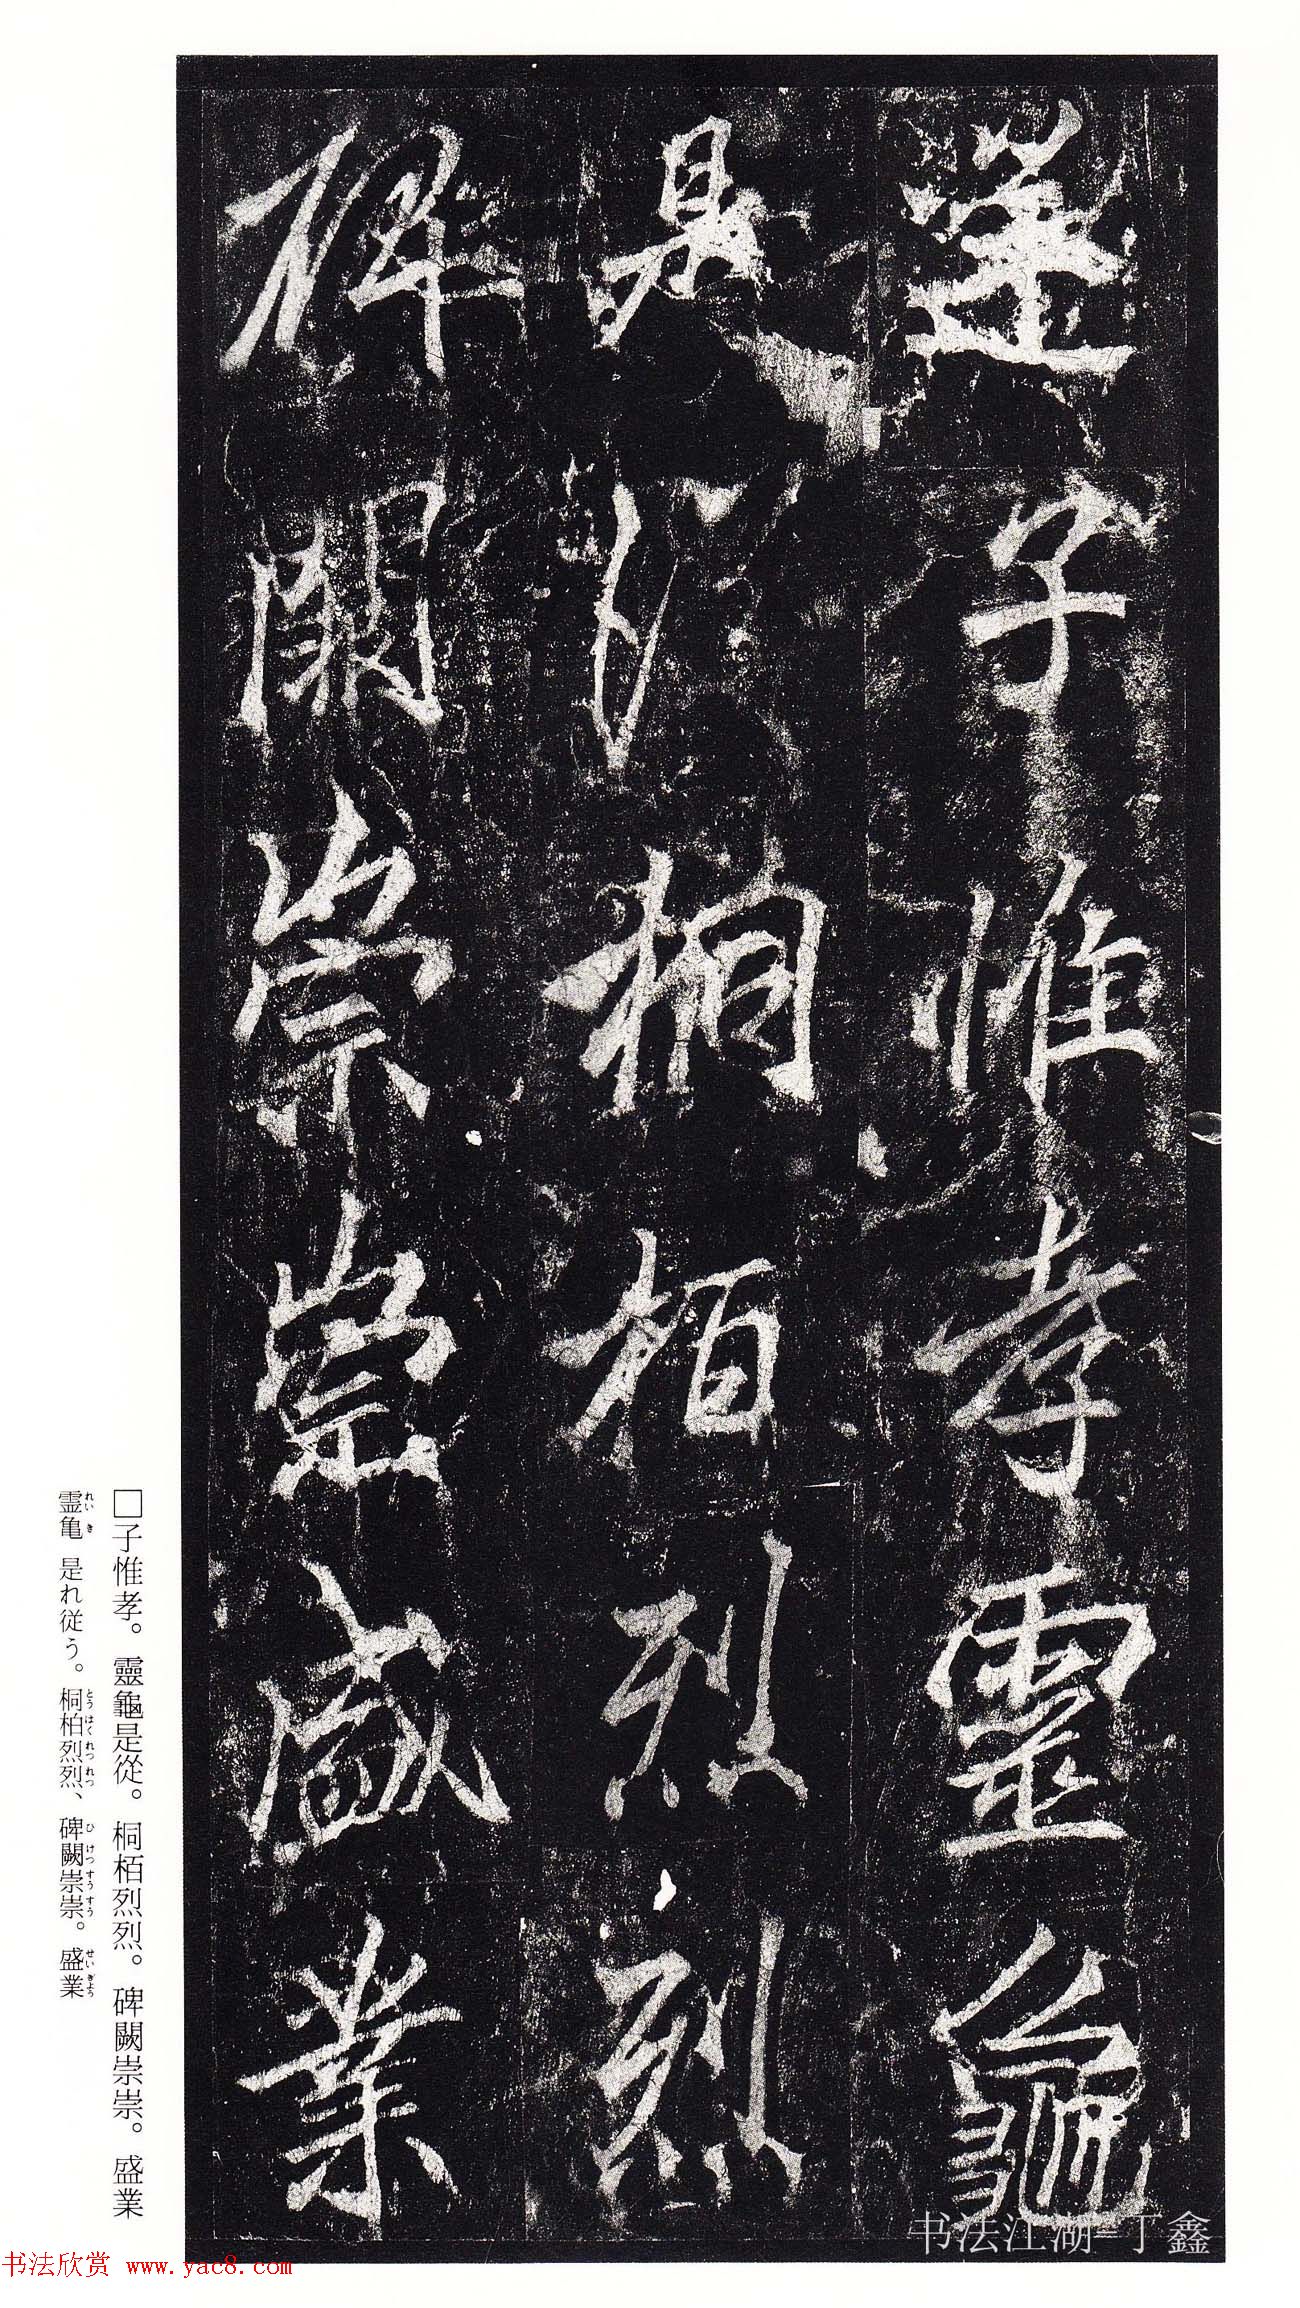 子惟孝靈龜
是從桐栢烈烈
碑闕崇崇盛業
□子惟孝。靈龜是從。桐栢烈烈。碑闕崇崇。盛業
霊亀是れ従う。桐柏烈烈、碑闕崇崇。盛業
れいき とうはくれつれつ ひけつすうすう せいぎょう
书法江湖=丁鑫
书法欣赏 www.yac8.com